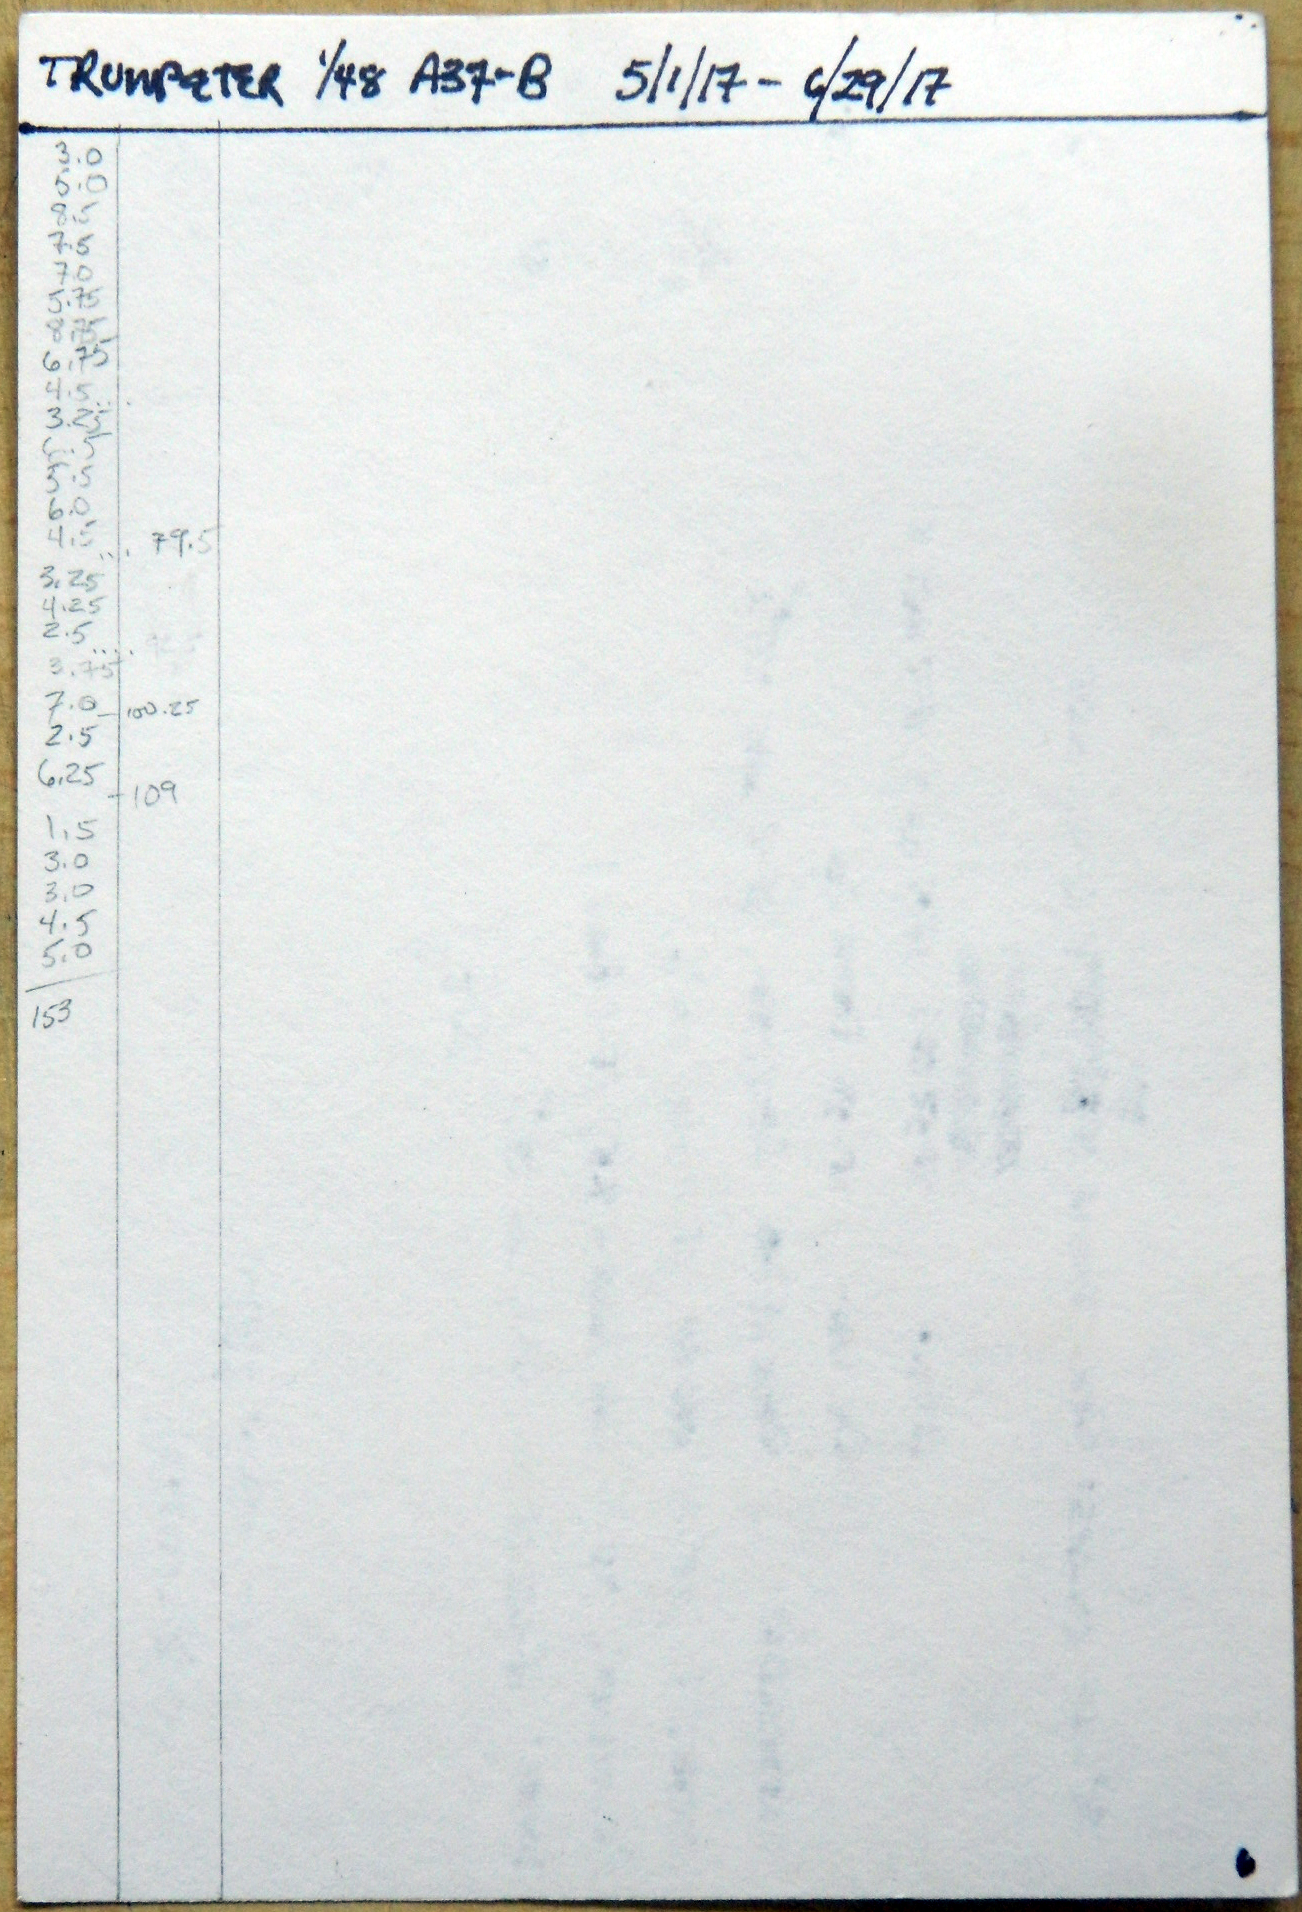 TRUMPETER 1/48 A37-B 5/1/17 - 6/29/17
3.0
5.0
8.5
7.5
7.0
5.75
8.75
6.75
4.5
3.25
5.5
6.0
4.5 79.5
3.25
4.25
2.5
3.75
7.0 - 100.25
2.5
6.25
- 109
1.5
3.0
3.0
4.5
5.0
153